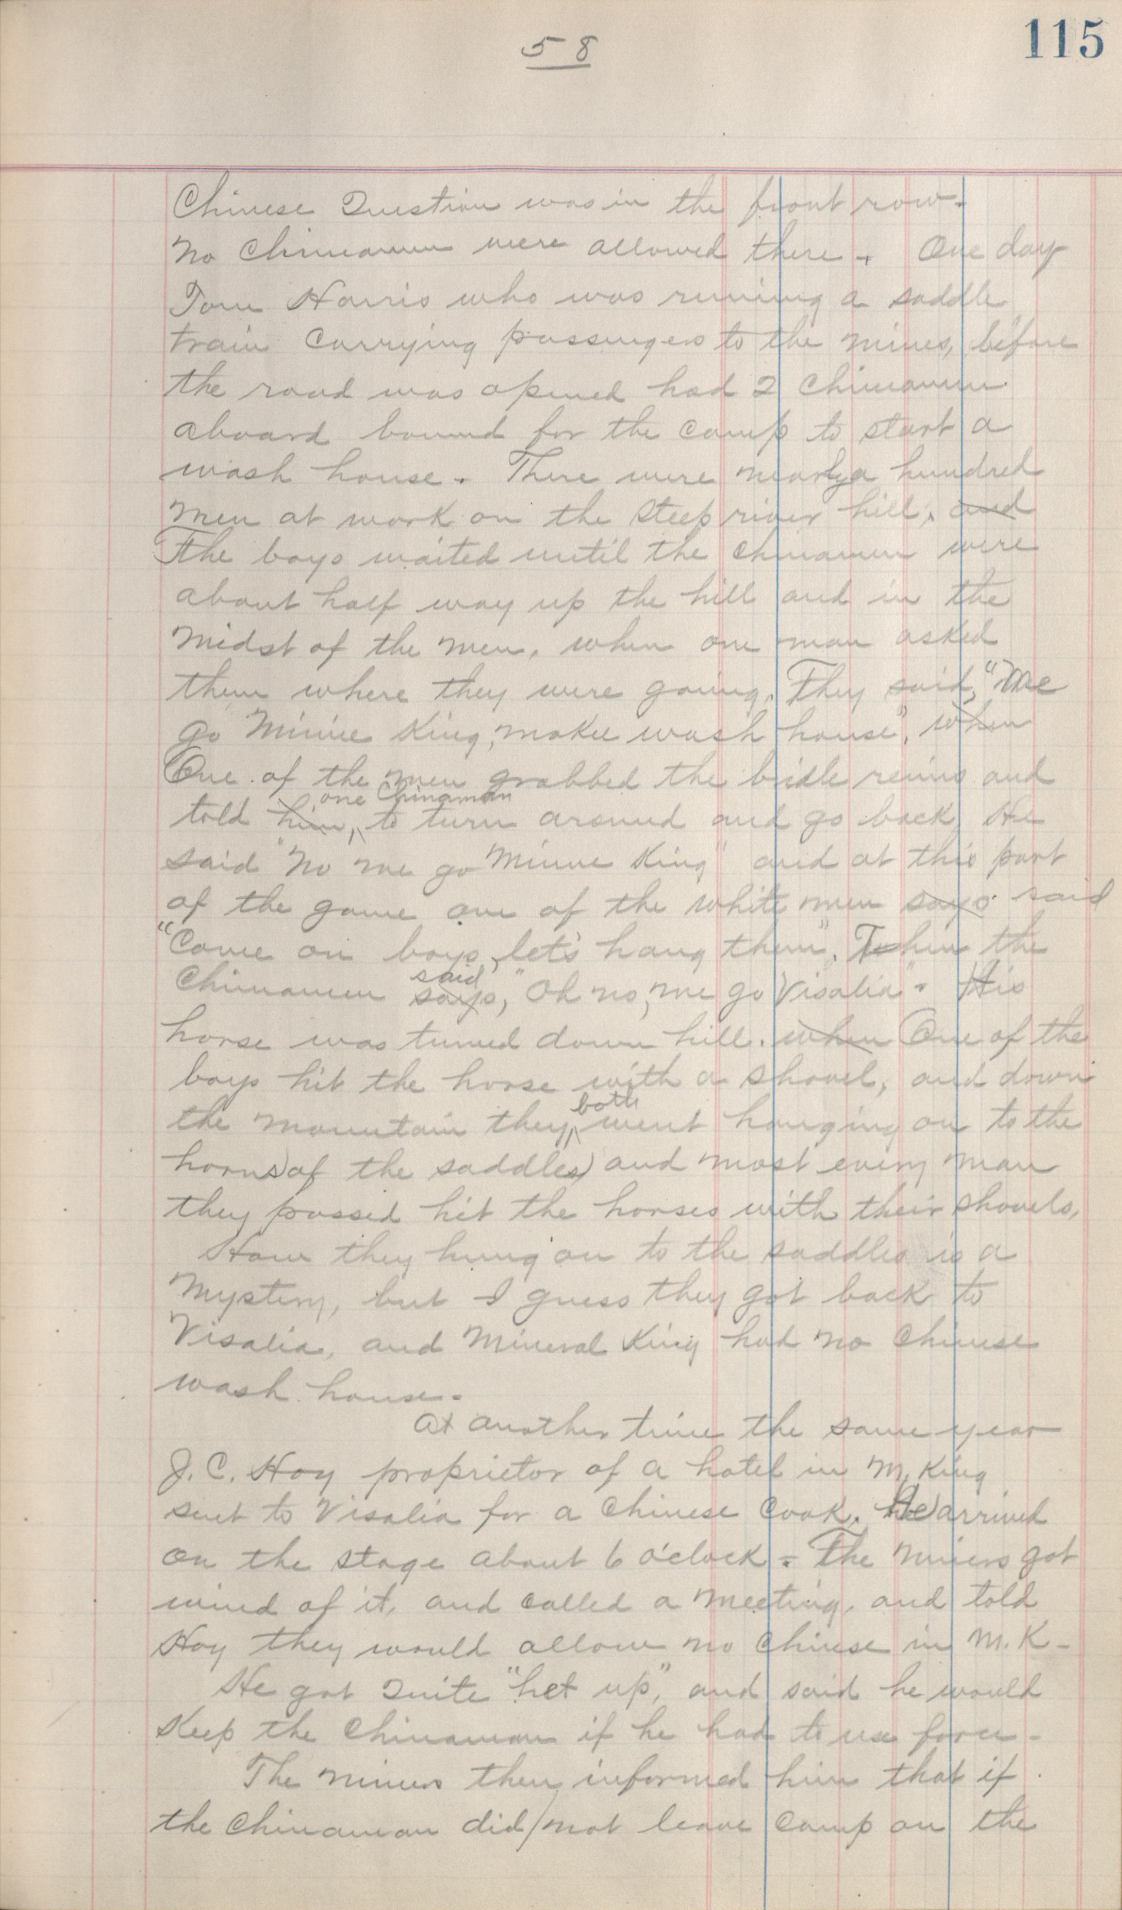 58
115
Chinese Question was in the front row.
No Chinamen were allowed there. One day
Tom Harris who was runing a saddle
train carrying passengers to the mines, before
the road was opened had 2 Chinamen
aboard bound for the camp to start a
wash house. There were nearly a hundred
men at work on the steep river hill, and
The boys waited until the chinamen were
about half way up the hill and in the
midst of the men, when one man asked
them where they were going. They said, "Me
go Minnie King, makee wash house", when
One of the men grabbed the bridle reins and
one Chinaman
told him, to turn around and go back, He
said "No me go Minnie King" and at this part
of the game one of the white men says said
"Come on boys, let's hang them". Then the
said
Chinamen says, "Oh no, me go Visalia". His
horse was turned down hill. when One of the
boys hit the horse with a shovel, and down
both
the mountain they went hanging on to the
horns of the saddles and most every man
they passed hit the horses with their shovels,
How they hung on to the saddles is a
Mystery, but I guess they got back to
Visalia, and Mineral King had no Chinese
wash house.
At another time the same year
J. C. Hoy proprietor of a hotel in M. King
sent to Visalia for a Chinese Cook. He arrived
on the stage about 6 o'clock. The miners got
wind of it, and called a meeting, and told
Hoy they would allow no Chinese in M. K.
He got Quite "het up", and said he would
Keep the Chinaman if he had to use force.
The miners then informed him that if
the Chinaman did not leave camp on the